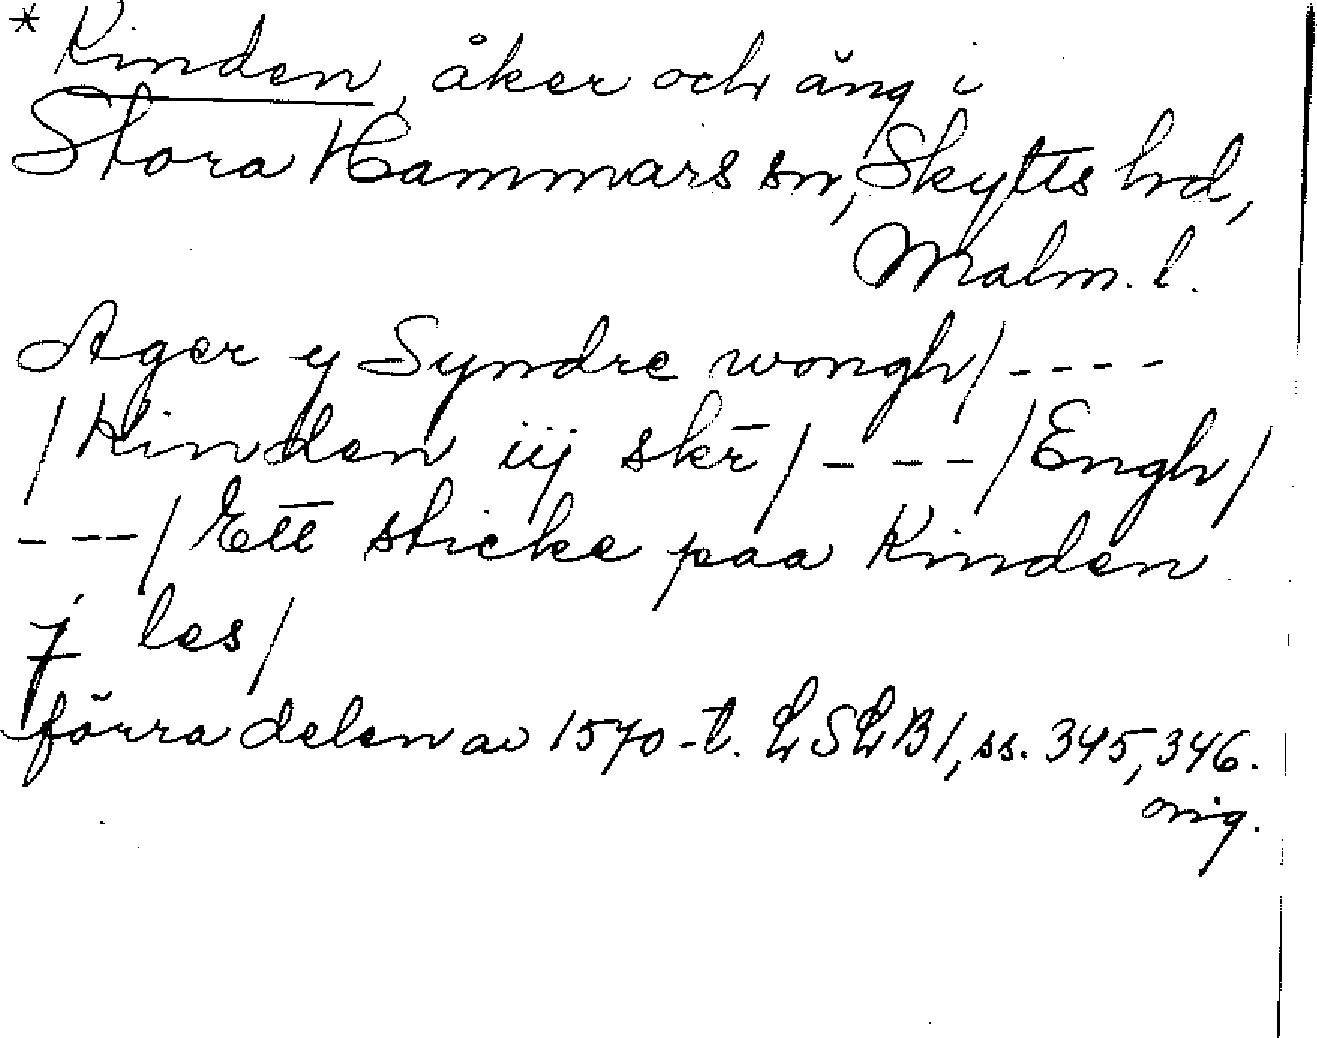 * Kinden, åker och äng i
Stora Hammars sn, Skytts hd,
Malm. l.
Ager y Syndre wongh/ - - - -
/Kinden iij skr̄/ - - - /Engh/
- - - / Ett sticke paa Kinden
j les/
förra delen av 1570-t. LSLB1, ss. 345, 346.
orig.